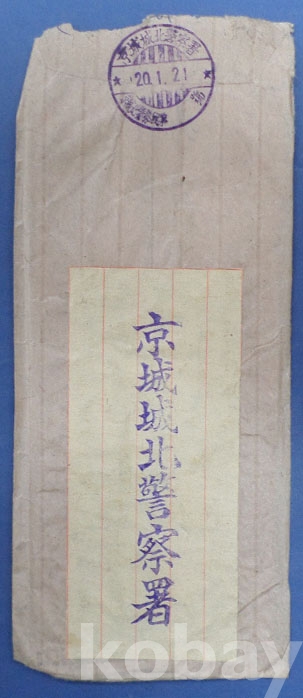 京城城北警察署
20.1.21
京城城北警察署
kobay